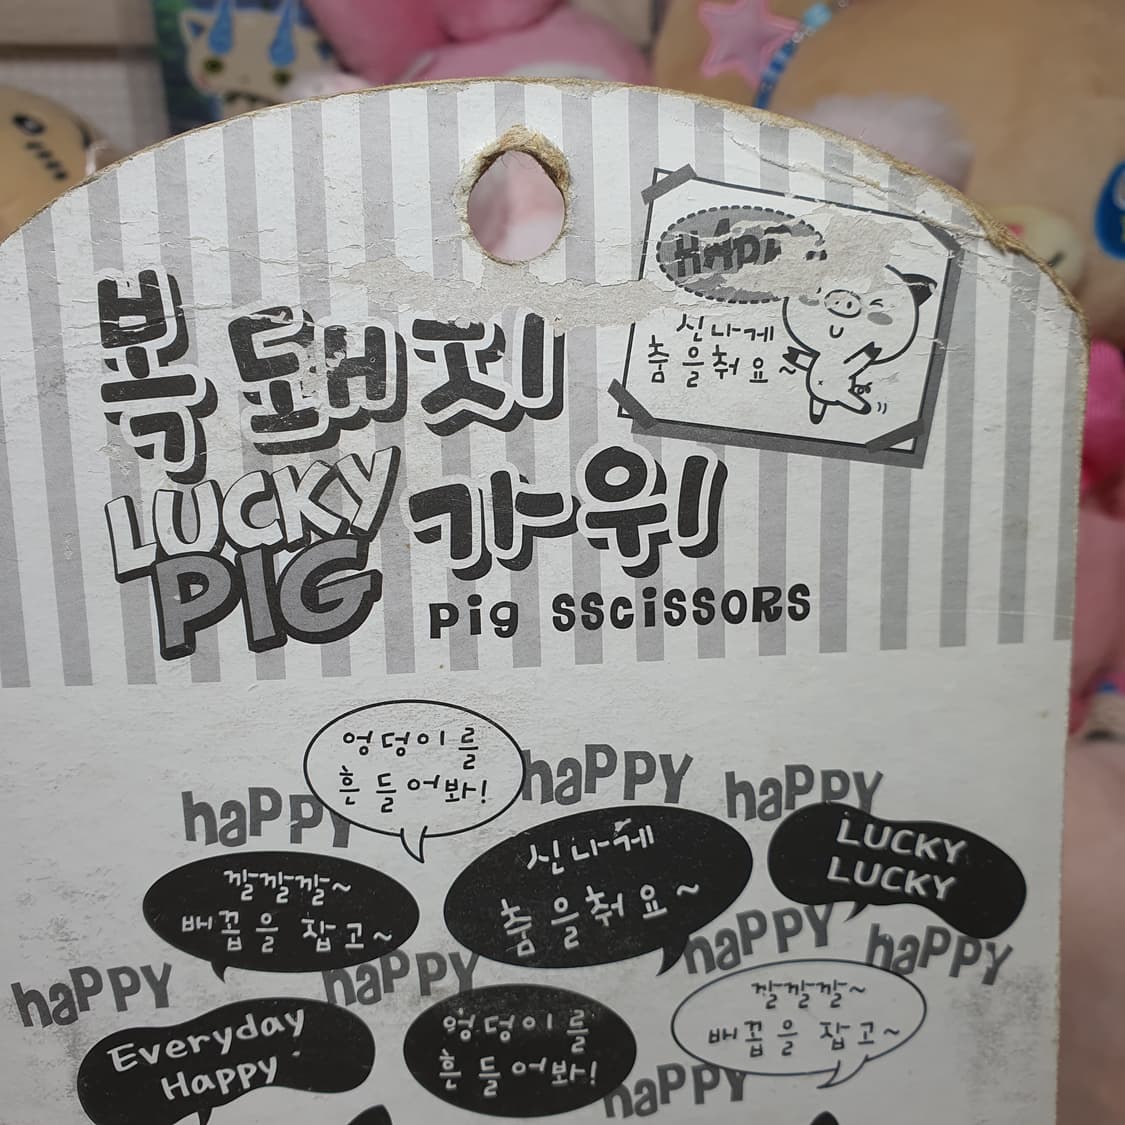 복돼지
HAPP
신나게
춤을춰요~
LUCKY
PIG
가위
Pig SSciSSORS
엉덩이를
흔들어봐!
haPPY
haPPY
haPPY
깔깔깔~
배꼽을 잡고~
신나게
춤을춰요~
LUCKY
LUCKY
haPPY
haPPY
haPPY
haPPY
Everyday
Happy
엉덩이를
흔들어봐!
깔깔깔~
배꼽을 잡고~
haPPY